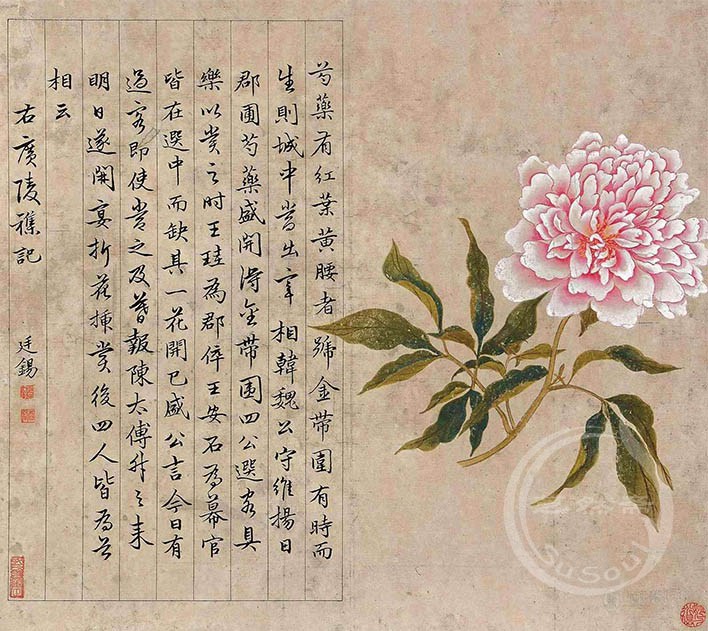 芍藥有紅葉黃腰者號金帶圍有時而
生則城中當出宰相韓魏公守維揚日
郡圃芍藥盛開得金帶圍四公選客具
樂以賞之時王珪為郡倅王安石為幕官
皆在選中而缺其一花開已盛公言今日有
過客即使當之及暮報陳太傅升之来
明日遂開宴折花插賞後四人皆為首
相云
右廣陵雜記
廷錫
SuSoul